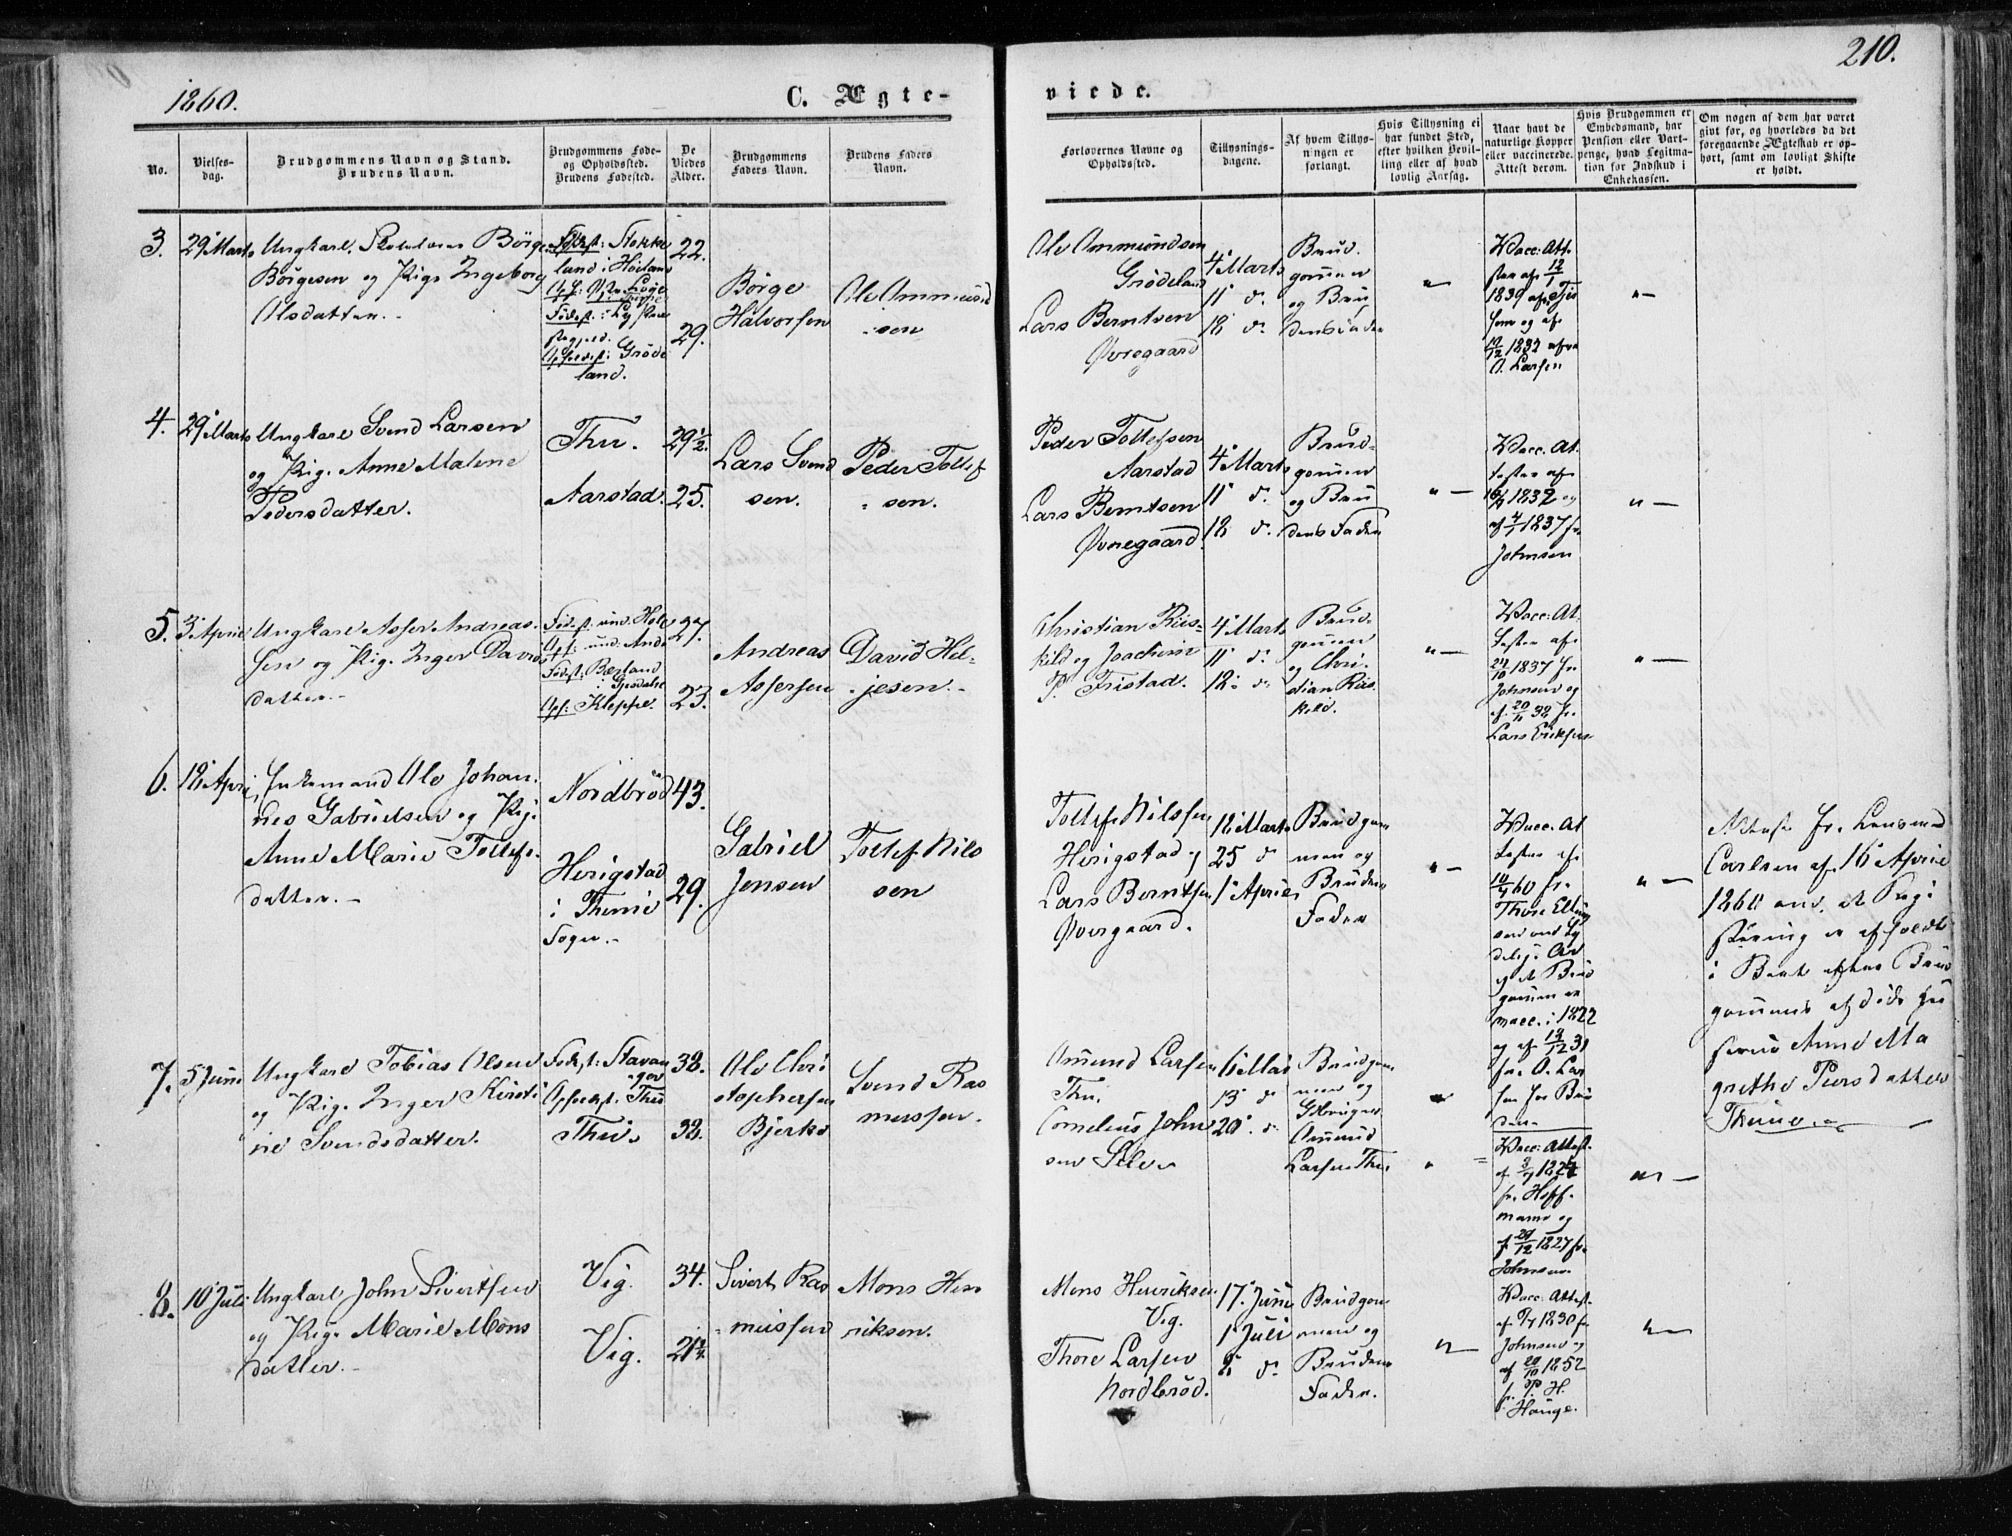 1860.
C. Ægte-
viede.
210.
No.
Vielses-
dag.
Brudgommens Navn og Stand.
Brudens Navn.
Brudgommens Føde-
og Opholdssted.
Brudens Fødested.
De
Viedes
Alder.
Brudgommens
Faders Navn.
Brudens Faders
Navn.
Forlovernes Navne og
Opholdssted.
Tillysnings-
dagene.
Af hvem Tillys-
ningen er
forlangt.
Hvis Tillysning ei
har fundet Sted,
efter hvilken Bevil-
ling eller af hvad
lovlig Aarsag.
Naar havt de
naturlige Kopper
eller vaccinerede.
Attest derom.
Hvis Brudgommen er
Embedsmand, har
Pension eller Vart-
penge, hvad Legitima-
tion for Indskud i
Enkekassen.
Om nogen af dem har været
givt før, og hvorledes da det
foregaaende Ægteskab er op-
hørt, samt om lovligt Skifte
er holdt.
3.
29 Marts
Ungkarl, Skolelærer Børge
Børgesen og Pige Ingeborg
Olsdatter.
Fødest: Stokke
land i Høiland
Fødest:
Grøde
land.
22.
29.
Børge
Halvorsen
Ole Ammund
sen
Ole Ammundsen
Grødeland
Lars Berntsen
Øvregaard
4 Marts
11 d.
18 d.
Brud
gommen
og Bru
dens Fader
Vacc: At
tester af 12/1
1839 af
sen og af
1832
O. Larsen
4.
29 Marts
Ungkarl Svend Larsen
og Pige Anne Malene
Pedersdatter.
Thu.
Aarstad.
29½.
25.
Lars Svend
sen.
Peder Tollef
sen.
Peder Tollefsen
Aarstad
Lars Berntsen
Øvregaard.
4 Marts
11 d.
18 d.
Brud-
gommen
og Bru
dens Fader
Vacc. At
tester af
1832 og
af 1837 fr.
Johnsen
5.
3 April
Ungkarl Asser Andreas-
sen og Pige Inger Davids
datter.
Fødest:
Fødest: Bærland
i Gjesdahl
Oph: Kleppe.
27.
23.
Andreas
Assersen
David Hel-
jesen.
Christian Riis-
kild og Joachim
P. Tristad.
4 Marts
11 d.
18 d.
Brud-
gommen
og Chri-
stian Riis
kild.
Vacc. At
tester af
24/10 1837 fr.
Johnsen og
af 20/11 38 fr.
Lars Eriksen
6.
18 April
Enkemand Ole Johan-
nes Gabrielsen og Pige
Anne Marie Tollefs-
datter.
Nordbrød
Herigstad
i Thime
Sogn.
43.
29.
Gabriel
Jensen
Tollef Nils
sen
Tollef Nilssen
Herigstad og
Lars Berntsen
Øvregaard.
18 Marts
25 d
1 April
Brudgom
men og
Brudens
Fader
Vacc. At
tester af
60 fr.
Thore
og at Brud
gommen er
vacc. i 1822
og af 13/12 31
fr. O. Lar
sen for Bru
den
Attest fr. Lensmand
Carlsen af 16 April
1860 om, at Regi
strering er afholdt
i Boet efter Brud
gommens afdøde Hu
strue Anne Ma
grethe Peersdatter
Thime.
7.
5 Juni
Ungkarl Tobias Olsen
og Pige Inger Kirsti
ne Svendsdatter.
Fødest: Stavan
ger
Thu
Thu.
38.
32.
Ole Chri
stophersen
Bjerke
Svend Ras
mussen.
Omund Larsen
Thu,
Cornelius John
sen Sele
6 Mai
13 d
20 d.
Brudgom
men og
Omund
Larsen Thu
Vacc. Attest.
fr. Hoff-
mann og
af 20/12 1827 fr.
Johnsen.
8.
10 Juli
Ungkarl John Sivertsen
og Pige Marie Mons
datter.
Vig.
Vig.
34.
21½.
Sivert Ras
mussen
Mons Hen
riksen.
Mons Henriksen
Vig.
Thore Larsen
Nordbrød.
17 Juni
1 Juli
8 d.
Brudgom
men og
Brudens
Fader.
Vacc. Attest.
af 1830 f.
Johnsen og
af 20/10 1852
fr. P. H.
Hauge.